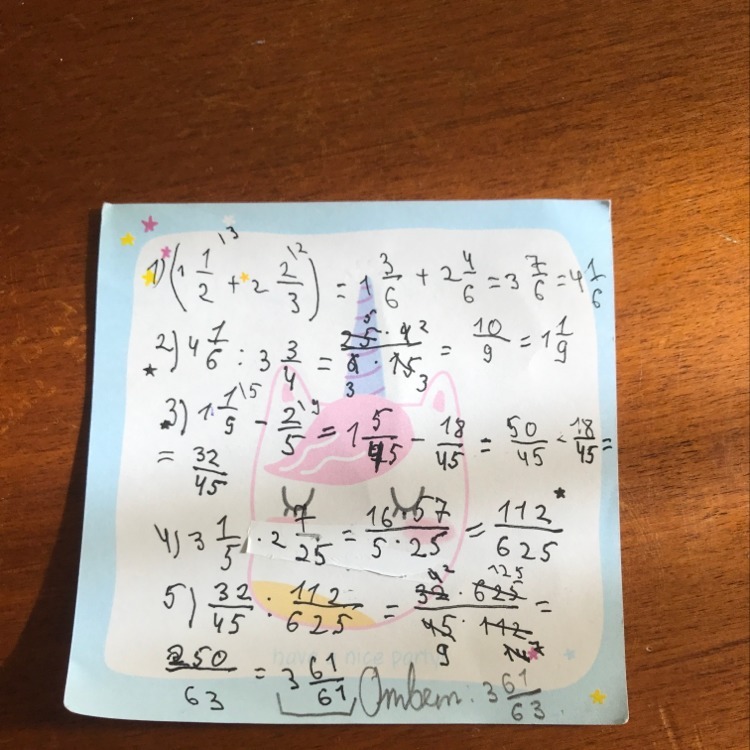 1) (1 1/2 \3 + 2 2/3 \2) = 1 3/6 + 2 4/6 = 3 7/6 = 4 1/6
2) 4 1/6 : 3 3/4 = 25 5 · 4 2 / 6 3 · 15 3 = 10/9 = 1 1/9
3) 1 1/9 \5 - 2/5 \9 = 1 5/45 - 18/45 = 50/45 - 18/45 =
= 32/45
4) 3 1/5 · 2 7/25 = 16 · 57 / 5 · 25 = 112/625
5) 32/45 : 112/625 = 32 4 2 · 625 125 / 45 9 · 112 14 7 =
250/63 = 3 61/61 Ответ: 3 61/63
have a nice party